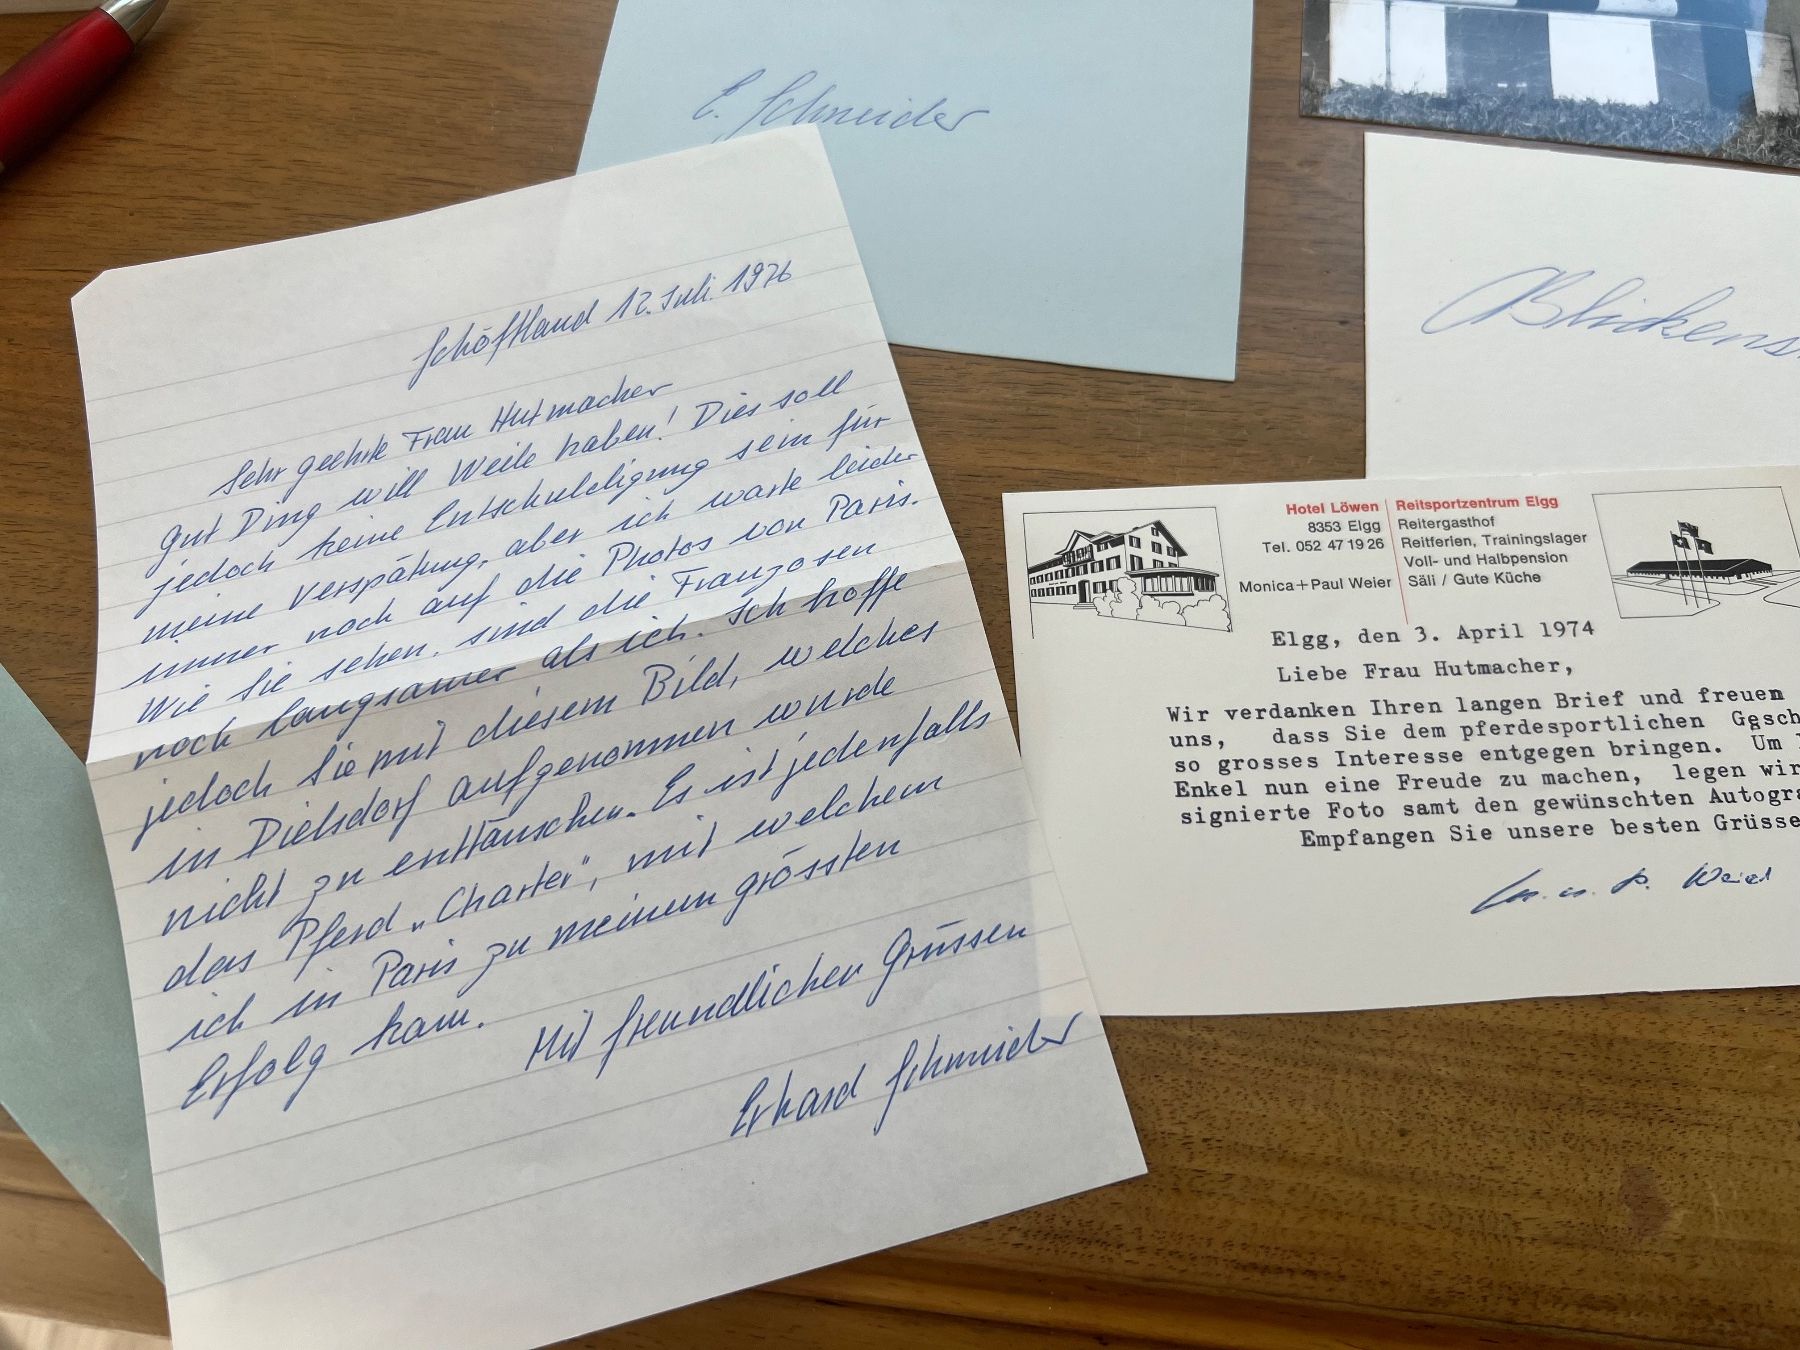 E. Schneider
Schöftland 12. Juli. 1976
Sehr geehrte Frau Hutmacher
Gut Ding will Weile haben! Dies soll
jedoch keine Entschuldigung sein für
meine Verspätung, aber ich warte leider
immer noch auf die Photos von Paris.
Wie Sie sehen, sind die Franzosen
noch langsamer als ich. Ich hoffe
jedoch Sie mit diesem Bild, welches
in Dielsdorf aufgenommen wurde
nicht zu enttäuschen. Es ist jedenfalls
das Pferd „Charter", mit welchem
ich in Paris zu meinem grössten
Erfolg kam.
Mit freundlichen Grüssen
Erhard Schneider
Blickens
Hotel Löwen
8353 Elgg
Tel. 052 47 19 26
Monica+Paul Weier
Reitsportzentrum Elgg
Reitergasthof
Reitferien, Trainingslager
Voll- und Halbpension
Säli / Gute Küche
Elgg, den 3. April 1974
Liebe Frau Hutmacher,
Wir verdanken Ihren langen Brief und freuen
uns, dass Sie dem pferdesportlichen Gesch
so grosses Interesse entgegen bringen. Um
Enkel nun eine Freude zu machen, legen wir
signierte Foto samt den gewünschten Autogra
Empfangen Sie unsere besten Grüsse
M. u. P. Weier